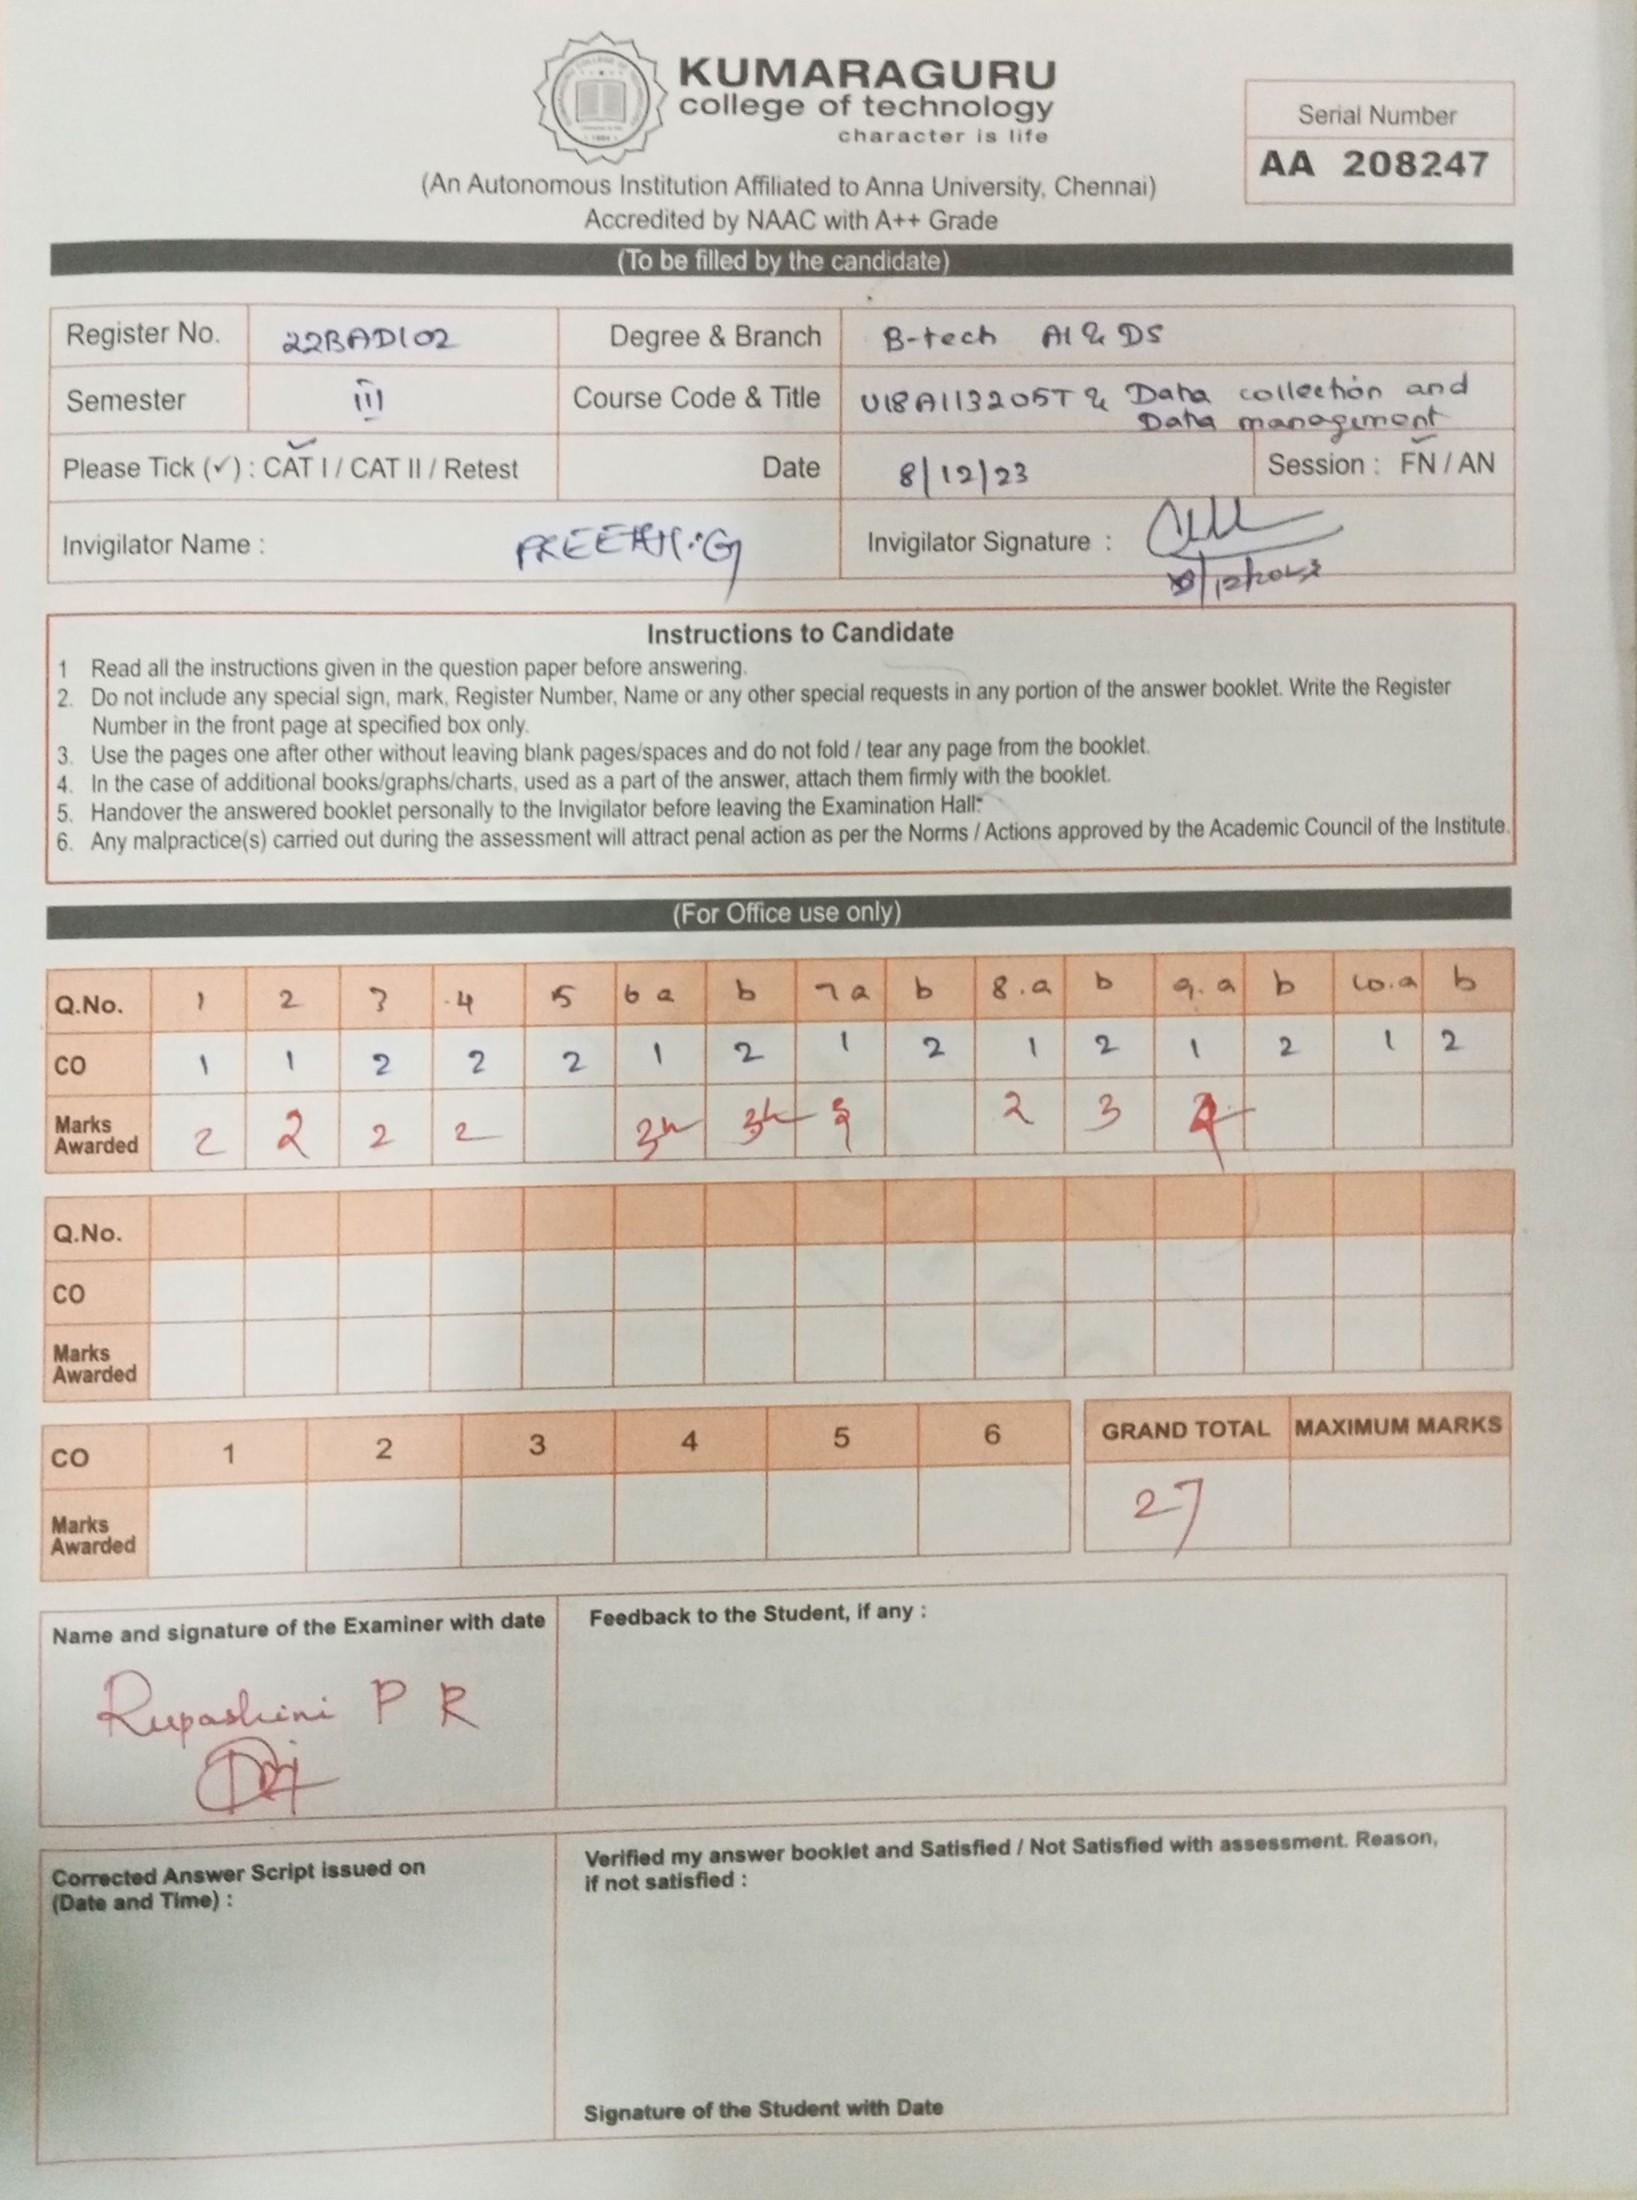 KUMARAGURU
college of technology
character is life
Serial Number
AA 208247
(An Autonomous Institution Affiliated to Anna University, Chennai)
Accredited by NAAC with A++ Grade
(To be filled by the candidate)
Register No. 22BAD102 Degree & Branch B-tech AI & DS
Semester III Course Code & Title U18AI13205T & Data collection and
Data management
Please Tick (✓) : CAT I / CAT II / Retest Date 8/12/23 Session : FN / AN
Invigilator Name : Invigilator Signature :
Instructions to Candidate
1 Read all the instructions given in the question paper before answering.
2. Do not include any special sign, mark, Register Number, Name or any other special requests in any portion of the answer booklet. Write the Register
Number in the front page at specified box only.
3. Use the pages one after other without leaving blank pages/spaces and do not fold / tear any page from the booklet.
4. In the case of additional books/graphs/charts, used as a part of the answer, attach them firmly with the booklet.
5. Handover the answered booklet personally to the Invigilator before leaving the Examination Hall.
6. Any malpractice(s) carried out during the assessment will attract penal action as per the Norms / Actions approved by the Academic Council of the Institute.
(For Office use only)
Q.No. 1 2 3 4 5 6 a b 7 a b 8.a b 9.a b 10.a b
CO 1 1 2 2 2 1 2 1 2 1 2 1 2 1 2
Marks
Awarded 2 2 2 2 2 3
Q.No.
CO
Marks
Awarded
CO 1 2 3 4 5 6 GRAND TOTAL MAXIMUM MARKS
Marks
Awarded 27
Name and signature of the Examiner with date
Feedback to the Student, if any :
Rupashini P R
Corrected Answer Script issued on
(Date and Time) :
Verified my answer booklet and Satisfied / Not Satisfied with assessment. Reason,
if not satisfied :
Signature of the Student with Date